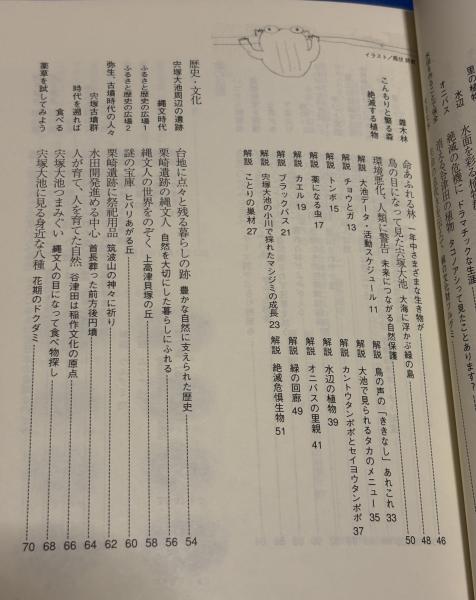 里の植
水辺 水面を彩る植物
オニバス 絶滅の危機に ドラマチックな生涯
タコノアシって見たことあります?
雑木林
こんもりと繁る森 命あふれる林 一年中さまざまな生き物が 46
鳥の目になって見た宍塚大池 大海に浮かぶ緑の島 48
絶滅する植物 環境悪化、人類に警告 未来につながる自然保護 50
解説 大池データ・活動スケジュール 11
解説 チョウとガ 13
解説 トンボ 15
解説 薬になる虫 17
解説 カエル 19
解説 ブラックバス 21
解説 宍塚大池の小川で採れたマシジミの成長 23
解説 ことりの巣材 27
解説 鳥の声の「ききなし」あれこれ 33
解説 大池で見られるタカのメニュー 35
解説 カントウタンポポとセイヨウタンポポ 37
解説 水辺の植物 39
解説 オニバスの里親 41
解説 緑の回廊 49
解説 絶滅危惧生物 51
歴史・文化
宍塚大池周辺の遺跡 台地に点々と残る暮らしの跡 豊かな自然に支えられた歴史 54
縄文時代 栗崎遺跡の縄文人 自然を大切にした暮らしにふれる 56
ふるさと歴史の広場1 縄文人の世界をのぞく 上高津貝塚の丘 58
ふるさと歴史の広場2 謎の宝庫 ヒバリあがる丘 60
弥生、古墳時代の人々 栗崎遺跡に祭祀用品 筑波山の神々に祈り 62
宍塚古墳群 水田開発進める中心 首長葬った前方後円墳 64
時代を遡れば 人が育て、人を育てた自然 谷津田は稲作文化の原点 66
食べる 宍塚大池つまみぐい 縄文人の目になって食べ物探し 68
薬草を試してみよう 宍塚大池に見る身近な八種 花期のドクダミ 70